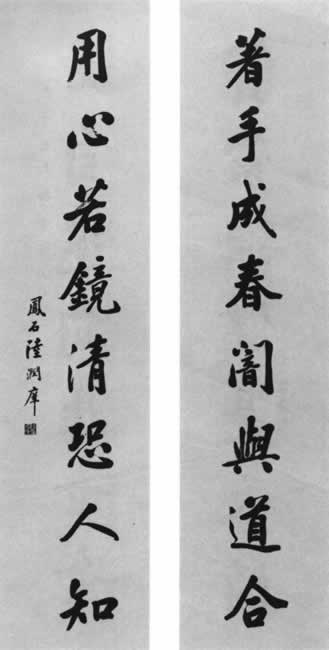 著手成春闇與道合
用心若鏡清恐人知
鳳石陸潤庠